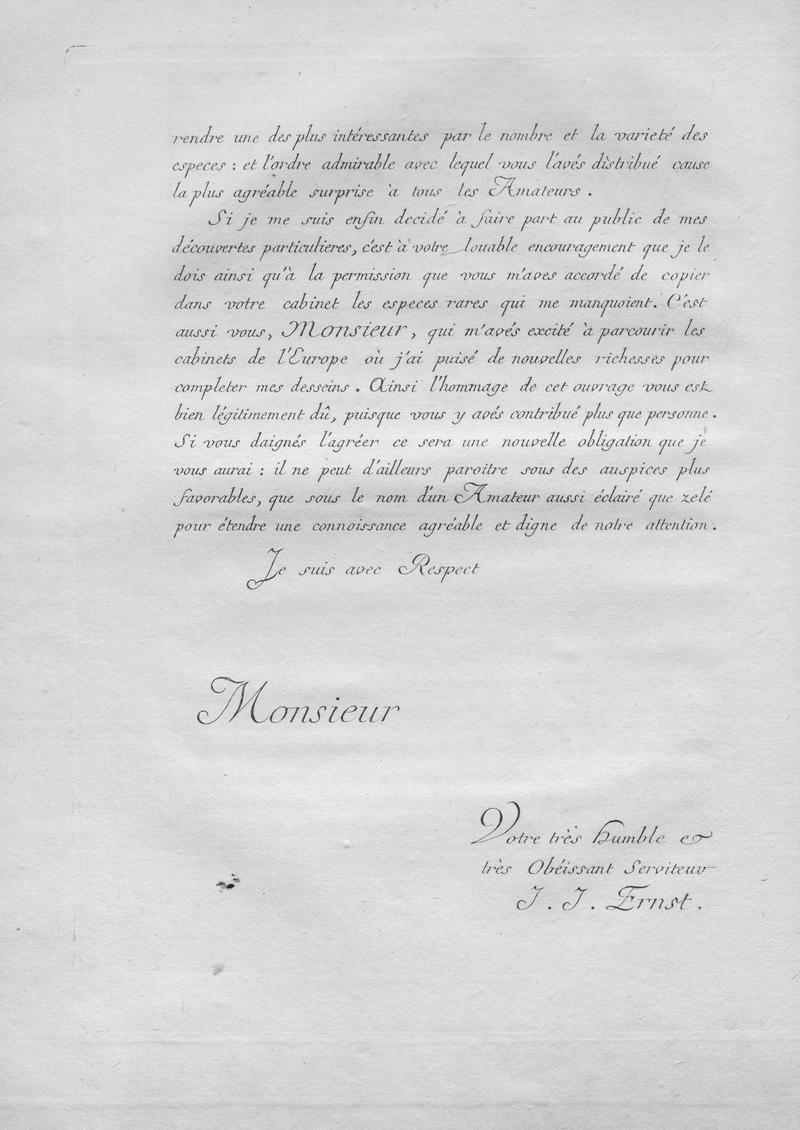 rendre une des plus intéressantes par le nombre et la varieté des
especes : et l'ordre admirable avec lequel vous l'avés distribué cause
la plus agréable surprise à tous les Amateurs .
Si je me suis enfin decidé à faire part au public de mes
découvertes particulieres, c'est à votre louable encouragement que je le
dois ainsi qu'à la permission que vous m'aves accordé de copier
dans votre cabinet les especes rares qui me manquoient. C'est
aussi vous, Monsieur, qui m'avés excité à parcourir les
cabinets de l'Europe où j'ai puisé de nouvelles richesses pour
completer mes desseins . Ainsi l'hommage de cet ouvrage vous est
bien légitimement dû, puisque vous y avés contribué plus que personne .
Si vous daignés l'agréer ce sera une nouvelle obligation que je
vous aurai : il ne peut d'ailleurs paroitre sous des auspices plus
favorables, que sous le nom d'un Amateur aussi éclairé que zelé
pour étendre une connoissance agréable et digne de notre attention .
Je suis avec Respect
Monsieur
Votre très humble &
très Obéissant Serviteur
J . J . Ernst .